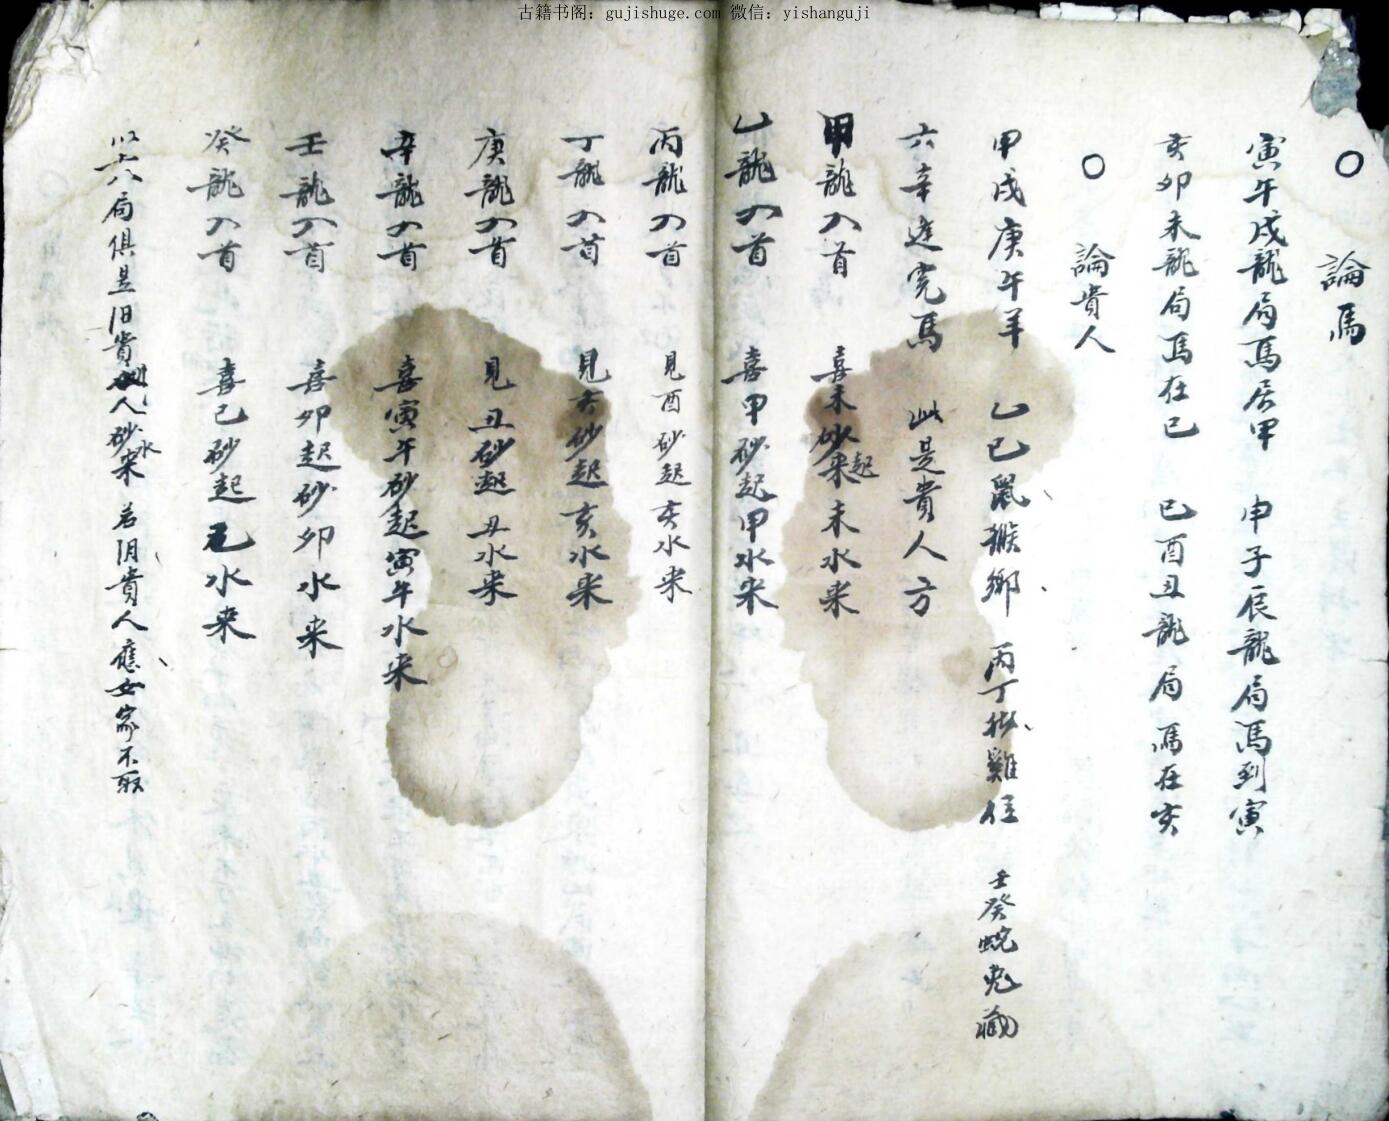 古籍书阁：gujishuge.com 微信：yishanguji
○ 論馬
寅午戌龍局馬居甲 申子辰龍局馬到寅
亥卯未龍局馬在巳 巳酉丑龍局馬在亥
○ 論貴人
甲戌庚午羊 乙己鼠猴鄉 丙丁猪雞位 壬癸蛇兔藏
六辛逢馬 此是貴人方
甲龍入首 喜未砂起来未水来
乙龍入首 喜甲砂起甲水来
丙龍入首 見酉砂起亥水来
丁龍入首 見亥砂起亥水来
庚龍入首 見丑砂起丑水来
辛龍入首 喜寅午砂起寅午水来
壬龍入首 喜卯起砂卯水来
癸龍入首 喜己砂起水来
以六局俱是旧貴人砂水来 若阴貴人應女家不取